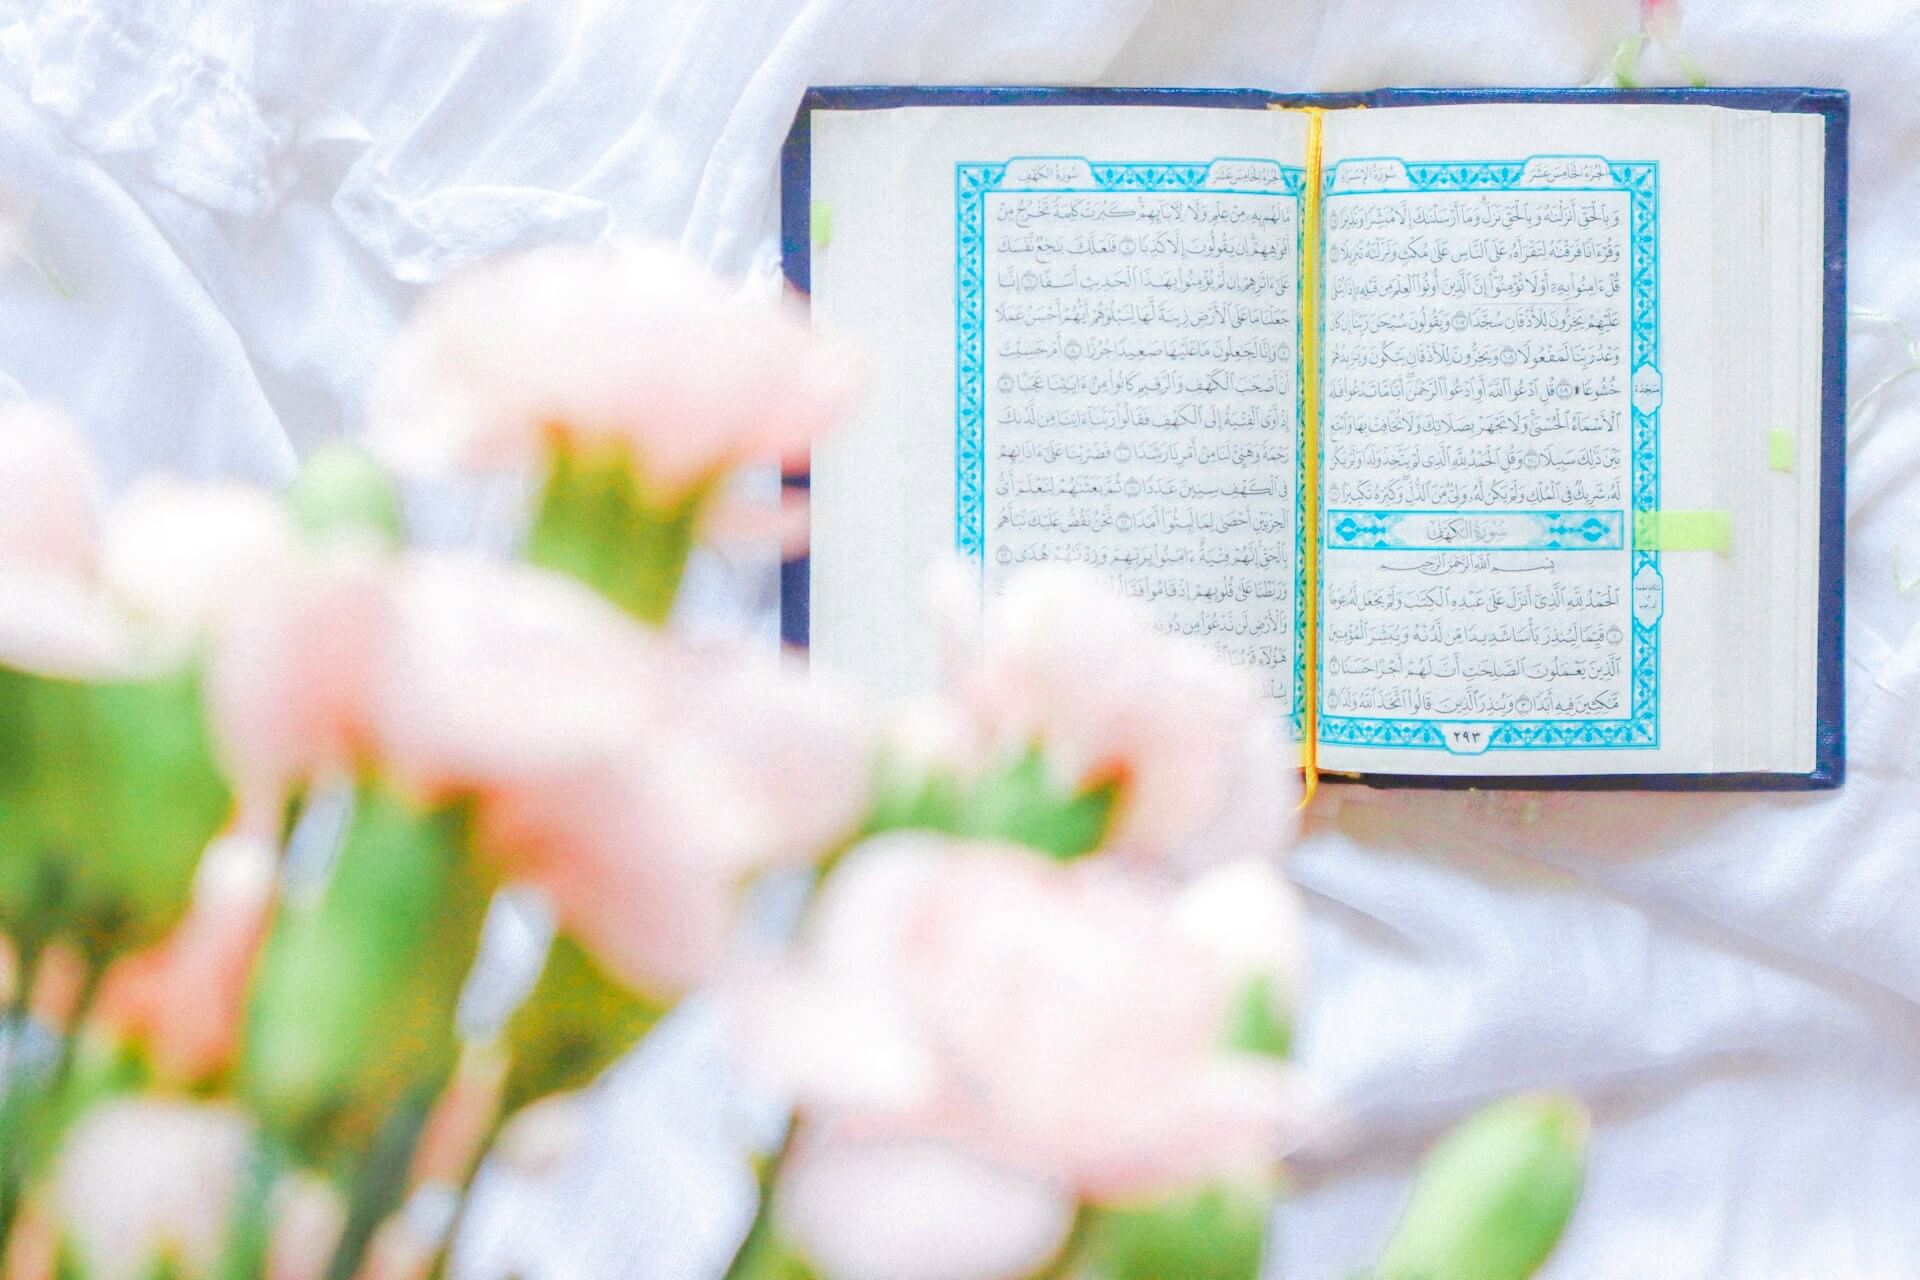 الجزء الخامس عشر
سورة الإسراء
وَبِالْحَقِّ أَنزَلْنَٰهُ وَبِالْحَقِّ نَزَلَ وَمَآ أَرْسَلْنَٰكَ إِلَّا مُبَشِّرًا وَنَذِيرًا ١٠٥
وَقُرْءَانًا فَرَقْنَٰهُ لِتَقْرَأَهُۥ عَلَى النَّاسِ عَلَىٰ مُكْثٍ وَنَزَّلْنَٰهُ تَنزِيلًا ١٠٦
قُلْ ءَامِنُوا بِهِۦٓ أَوْ لَا تُؤْمِنُوٓا إِنَّ الَّذِينَ أُوتُوا الْعِلْمَ مِن قَبْلِهِۦٓ إِذَا يُتْلَىٰ
عَلَيْهِمْ يَخِرُّونَ لِلْأَذْقَانِ سُجَّدًا ١٠٧ وَيَقُولُونَ سُبْحَٰنَ رَبِّنَآ إِن كَانَ
وَعْدُ رَبِّنَا لَمَفْعُولًا ١٠٨ وَيَخِرُّونَ لِلْأَذْقَانِ يَبْكُونَ وَيَزِيدُهُمْ
خُشُوعًا ۩ ١٠٩ قُلِ ادْعُوا اللَّهَ أَوِ ادْعُوا الرَّحْمَٰنَ أَيًّا مَّا تَدْعُوا فَلَهُ
سجدة
الْأَسْمَآءُ الْحُسْنَىٰ وَلَا تَجْهَرْ بِصَلَاتِكَ وَلَا تُخَافِتْ بِهَا وَابْتَغِ
بَيْنَ ذَٰلِكَ سَبِيلًا ١١٠ وَقُلِ الْحَمْدُ لِلَّهِ الَّذِى لَمْ يَتَّخِذْ وَلَدًا وَلَمْ يَكُن
لَّهُۥ شَرِيكٌ فِى الْمُلْكِ وَلَمْ يَكُن لَّهُۥ وَلِىٌّ مِّنَ الذُّلِّ وَكَبِّرْهُ تَكْبِيرًا ١١١
سورة الكهف
بِسْمِ اللَّهِ الرَّحْمَٰنِ الرَّحِيمِ
الْحَمْدُ لِلَّهِ الَّذِىٓ أَنزَلَ عَلَىٰ عَبْدِهِ الْكِتَٰبَ وَلَمْ يَجْعَل لَّهُۥ عِوَجَا
١ قَيِّمًا لِّيُنذِرَ بَأْسًا شَدِيدًا مِّن لَّدُنْهُ وَيُبَشِّرَ الْمُؤْمِنِينَ
الَّذِينَ يَعْمَلُونَ الصَّٰلِحَٰتِ أَنَّ لَهُمْ أَجْرًا حَسَنًا ٢
مَّٰكِثِينَ فِيهِ أَبَدًا ٣ وَيُنذِرَ الَّذِينَ قَالُوا اتَّخَذَ اللَّهُ وَلَدًا ٤
٢٩٣
الجزء الخامس عشر
سورة الكهف
مَّا لَهُم بِهِۦ مِنْ عِلْمٍ وَلَا لِءَابَآئِهِمْ كَبُرَتْ كَلِمَةً تَخْرُجُ مِنْ
أَفْوَٰهِهِمْ إِن يَقُولُونَ إِلَّا كَذِبًا ٥ فَلَعَلَّكَ بَٰخِعٌ نَّفْسَكَ
عَلَىٰٓ ءَاثَٰرِهِمْ إِن لَّمْ يُؤْمِنُوا بِهَٰذَا الْحَدِيثِ أَسَفًا ٦ إِنَّا
جَعَلْنَا مَا عَلَى الْأَرْضِ زِينَةً لَّهَا لِنَبْلُوَهُمْ أَيُّهُمْ أَحْسَنُ عَمَلًا
٧ وَإِنَّا لَجَٰعِلُونَ مَا عَلَيْهَا صَعِيدًا جُرُزًا ٨ أَمْ حَسِبْتَ
أَنَّ أَصْحَٰبَ الْكَهْفِ وَالرَّقِيمِ كَانُوا مِنْ ءَايَٰتِنَا عَجَبًا ٩
إِذْ أَوَى الْفِتْيَةُ إِلَى الْكَهْفِ فَقَالُوا رَبَّنَآ ءَاتِنَا مِن لَّدُنكَ
رَحْمَةً وَهَيِّئْ لَنَا مِنْ أَمْرِنَا رَشَدًا ١٠ فَضَرَبْنَا عَلَىٰٓ ءَاذَانِهِمْ
فِى الْكَهْفِ سِنِينَ عَدَدًا ١١ ثُمَّ بَعَثْنَٰهُمْ لِنَعْلَمَ أَىُّ
الْحِزْبَيْنِ أَحْصَىٰ لِمَا لَبِثُوٓا أَمَدًا ١٢ نَّحْنُ نَقُصُّ عَلَيْكَ نَبَأَهُم
بِالْحَقِّ إِنَّهُمْ فِتْيَةٌ ءَامَنُوا بِرَبِّهِمْ وَزِدْنَٰهُمْ هُدًى ١٣
وَرَبَطْنَا عَلَىٰ قُلُوبِهِمْ إِذْ قَامُوا فَقَالُوا
وَالْأَرْضِ لَن نَّدْعُوَا مِن دُونِهِۦٓ
هَٰٓؤُلَآءِ قَوْمُنَا